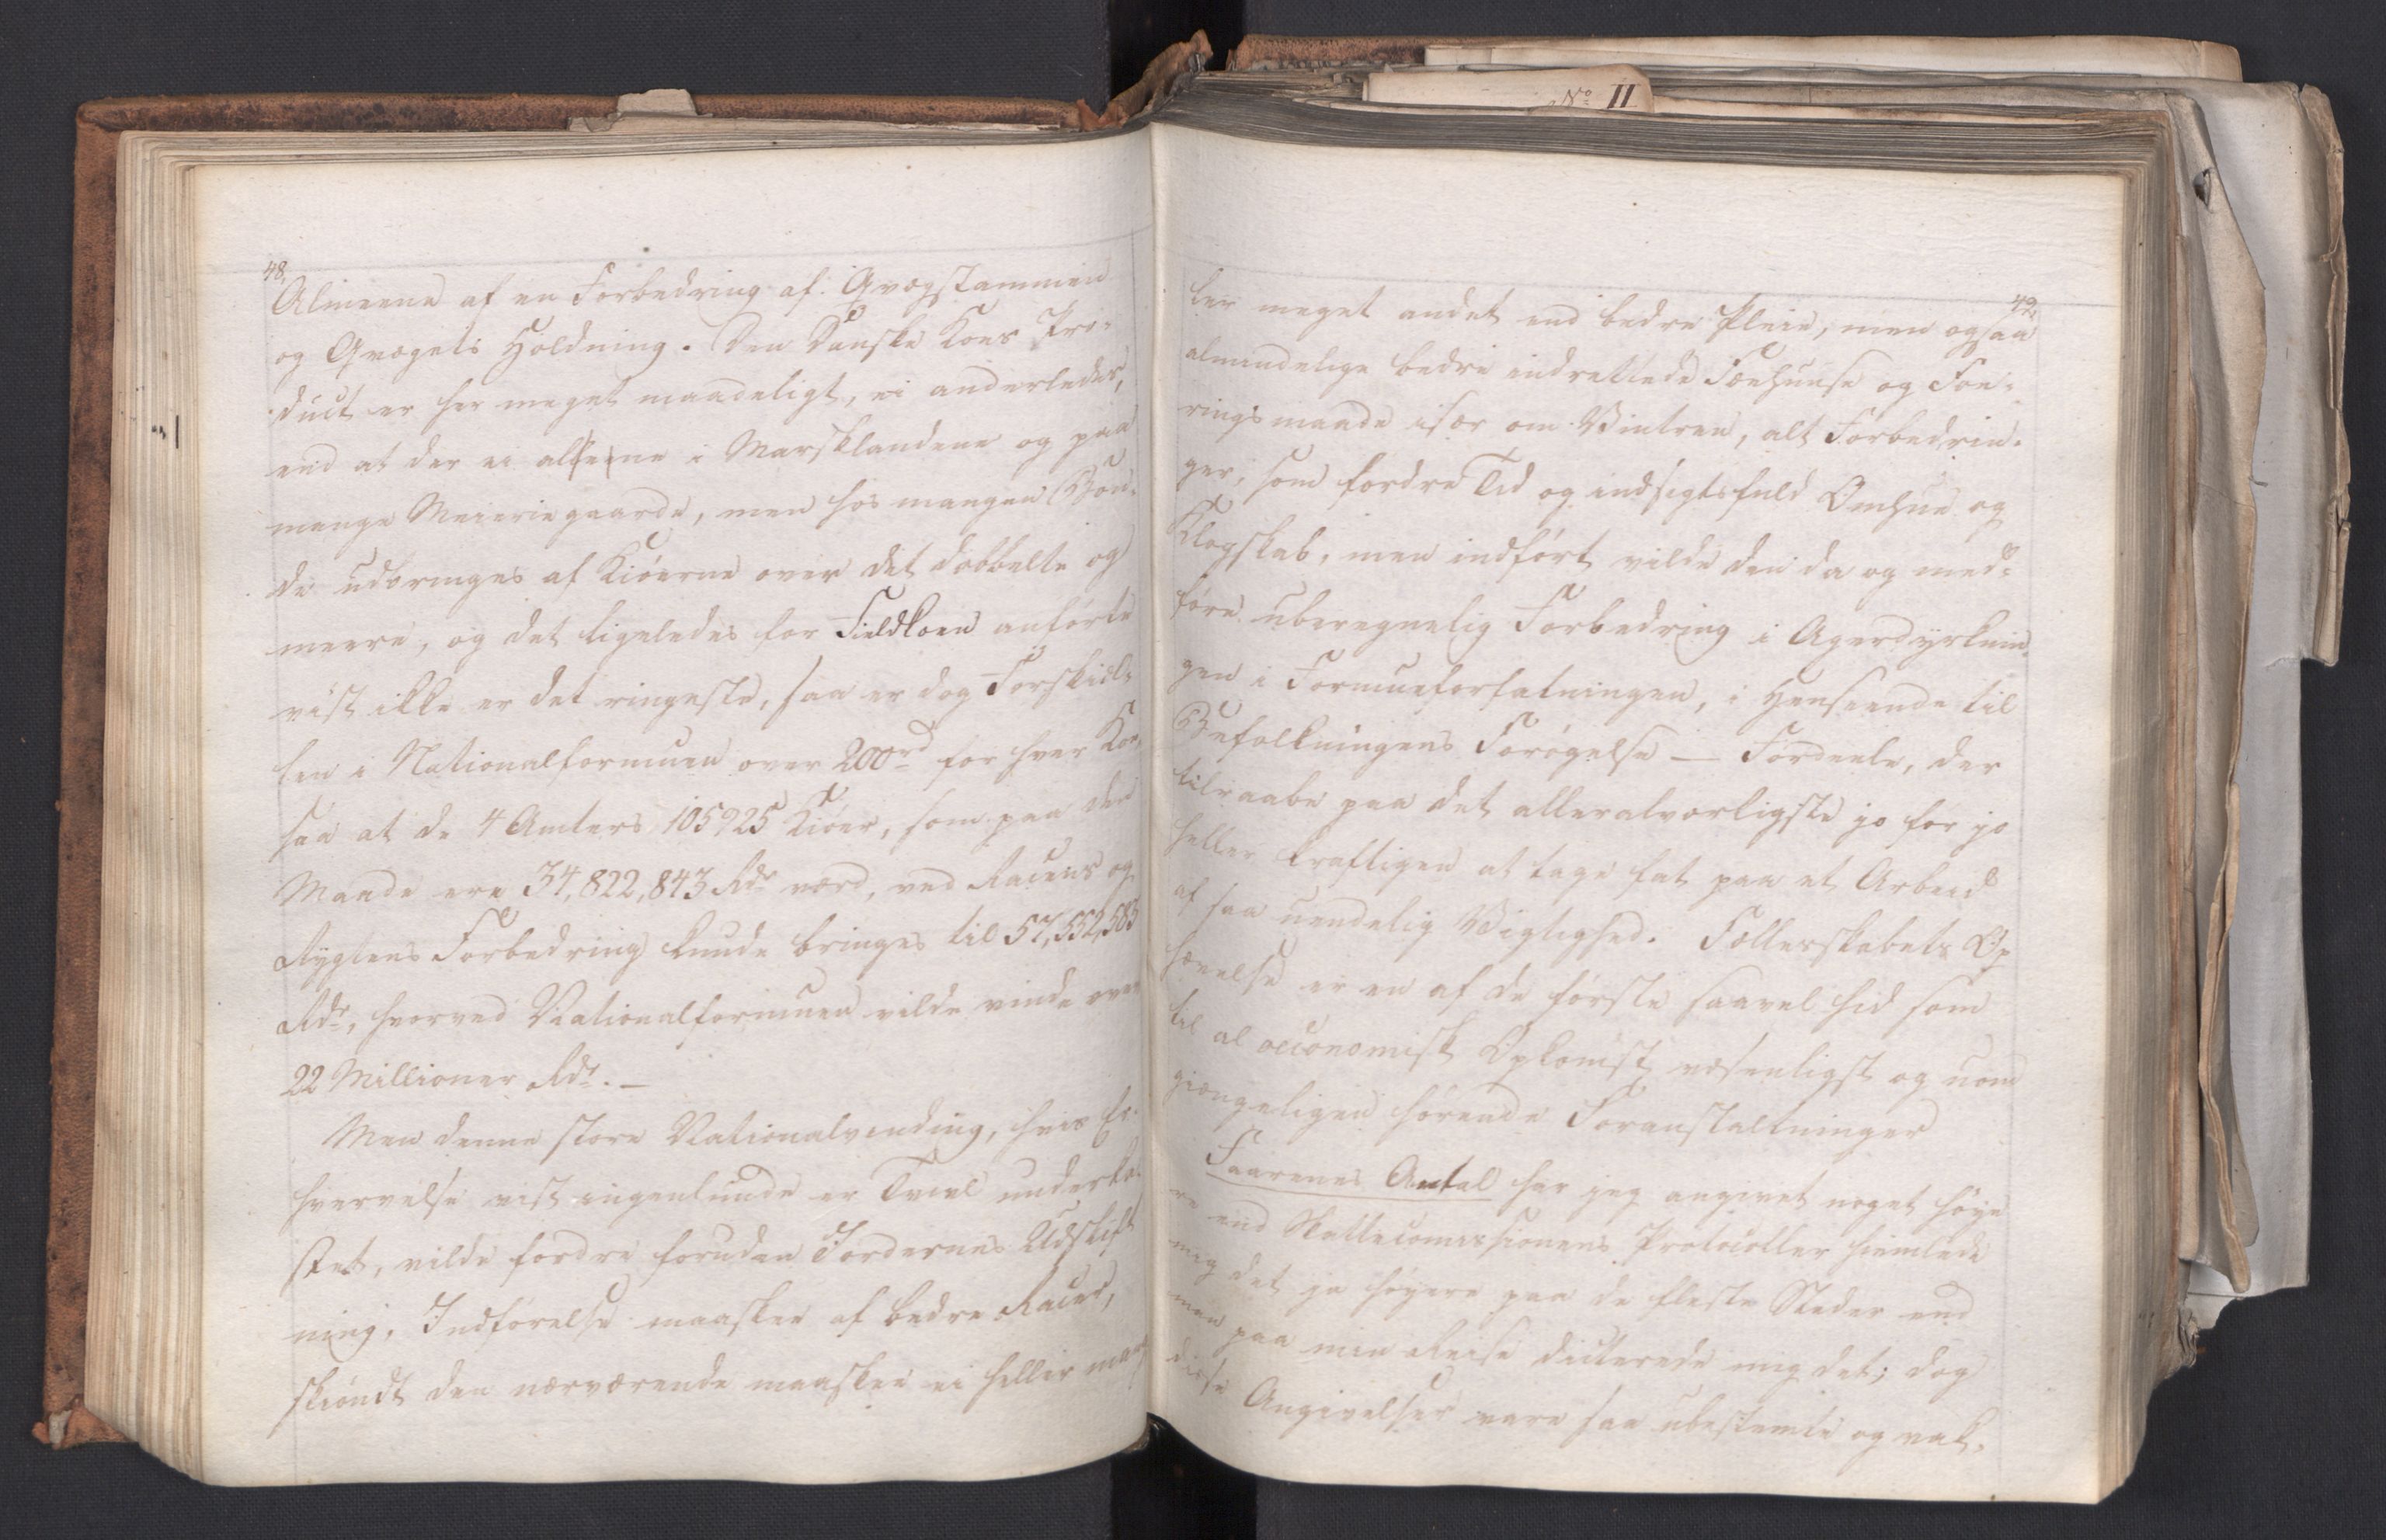 No II
48.
Almeene af en Forbedring af Qvægstammen
og Qvægets Holdning. Den Danske Koes Pro-
duct er her meget maadeligt, ei anderledes,
end at der ei alleene i Marsklandene og paa
mange Meieriegaarde, men hos mangen Bon-
de udbringes af Kiöerne over det dobbelte og
meere, og det ligeledes for Fieldkoen anförte
vist ikke er det ringeste, saa er dog Forskiel-
len i Nationalformuen over 200rd for hver Koe,
saa at de 4 Amters 105925 Kiöer, som paa den
Maade ere 34,822,843 Rdr værd, ved Racens og
Rygtens Forbedring kunde bringes til 57,552,583
Rdr, hvorved Nationalformuen vilde vinde over
22 Millioner Rdr. —
Men denne store Nationalvinding, hvis Er-
hvervelse vist ingenlunde er Tvivl underka-
stet, vilde fordre foruden Jordernes Udskift-
ning, Indförelse maaskee af bedre Racer,
skiöndt den nærværende maaskee ei heller mang
49.
ler meget andet end bedre Pleie, men ogsaa
almindelige bedre indrettede Fæehuuse og Foe-
ringsmaade især om Vintren, alt Forbedrin-
ger, som fordre Tid og indsigtsfuld Omhue og
Klogskab, men indfört vilde den da og med-
före uberegnelig Forbedring i Agerdyrknin-
gen i Formueforfatningen, i Henseende til
Befolkningens Forögelse — Fordeele, der
tilraabe paa det alleralvorligste jo for jo
heller kraftigen at tage fat paa et Arbeid
af saa uendelig Vigtighed. Fællesskabets Op
hævelse er en af de förste saavel hid som
til al oeconomisk Opkomst væsenligst og uom
giængeligen hörende Foranstaltninger
Faarenes Antal har jeg angivet noget höye
re end Skattecommissionens Protocoller hiemlede
mig det ja höyere paa de fleste Steder end
man paa min Reise dicterede mig det; dog
disse Angivelser vare saa ubestemte og vak-